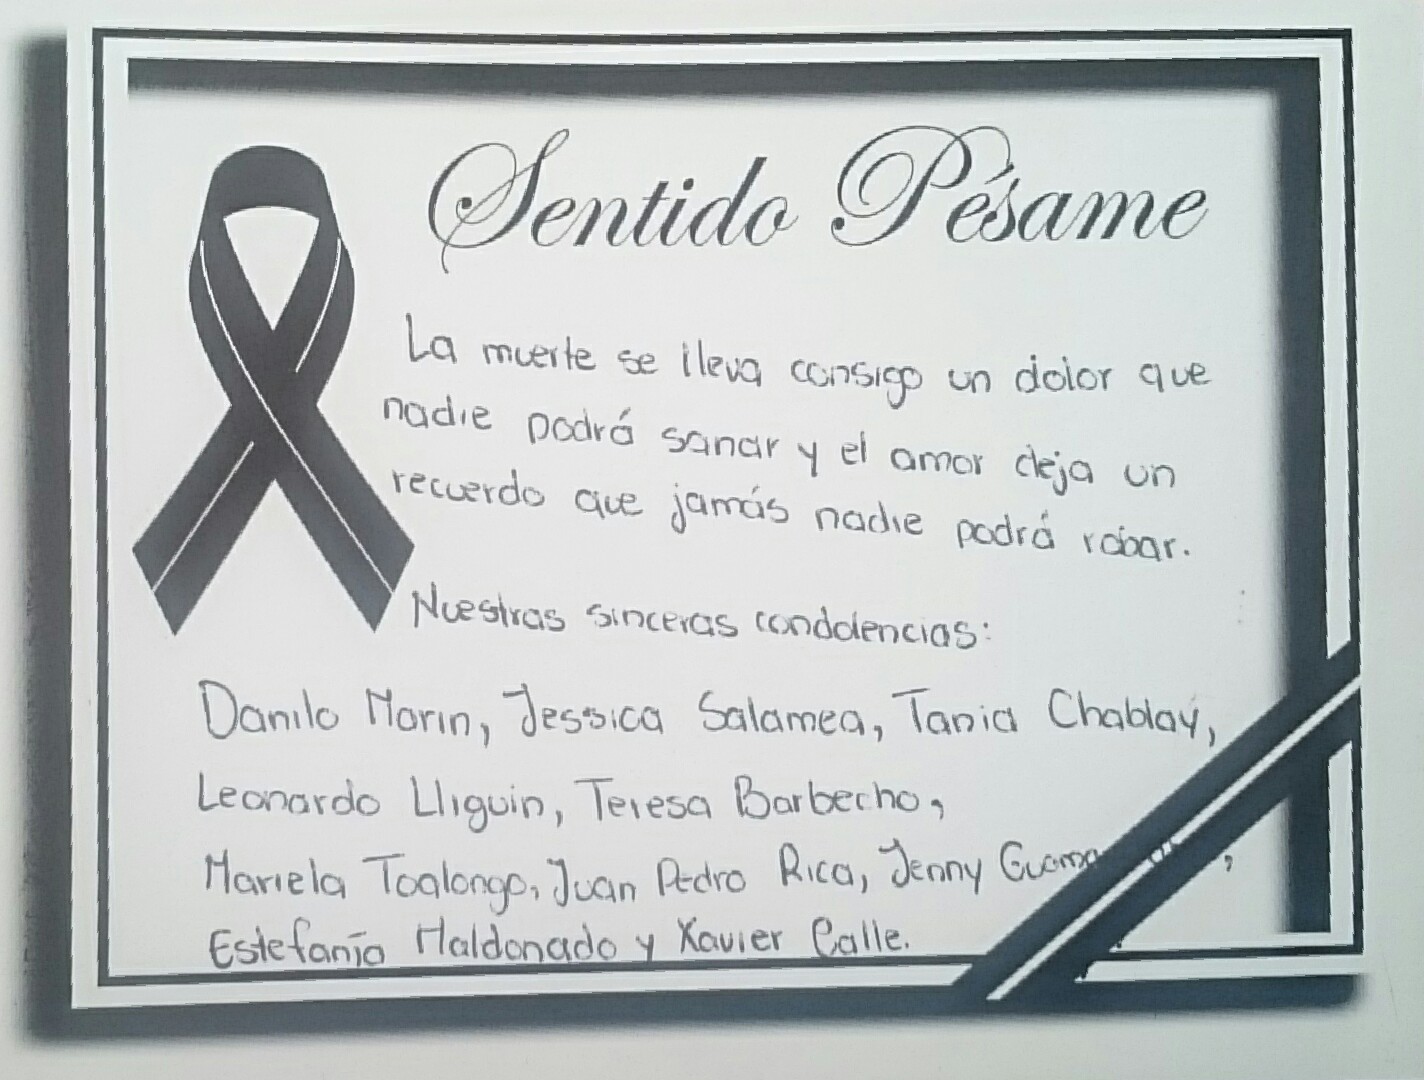 Sentido Pésame
La muerte se lleva consigo un dolor que
nadie podrá sanar y el amor deja un
recuerdo que jamás nadie podrá robar.
Nuestras sinceras condolencias:
Danilo Morin, Jessica Salamea, Tania Chablay,
Leonardo Lliguin, Teresa Barbecho,
Mariela Toalongo, Juan Pedro Rica, Jenny
Estefanía Maldonado y Xavier Calle.